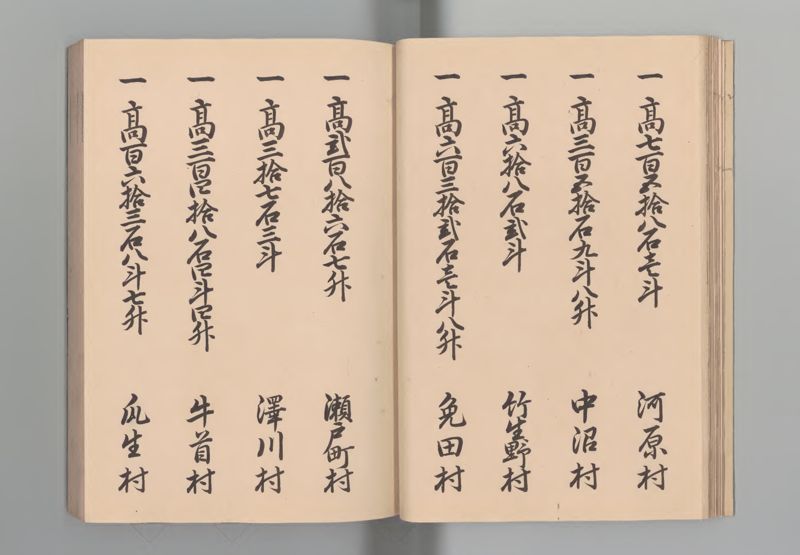 一 高七百五拾八石壱斗 河原村
一 高三百五拾石九斗八升 中沼村
一 高六拾八石弐斗 竹生野村
一 高六百三拾弐石壱斗八升 免田村
一 高弐百八拾六石七升 瀬戸町村
一 高三拾七石三斗 澤川村
一 高三百四拾八石四斗四升 牛首村
一 高百六拾三石八斗七升 瓜生村